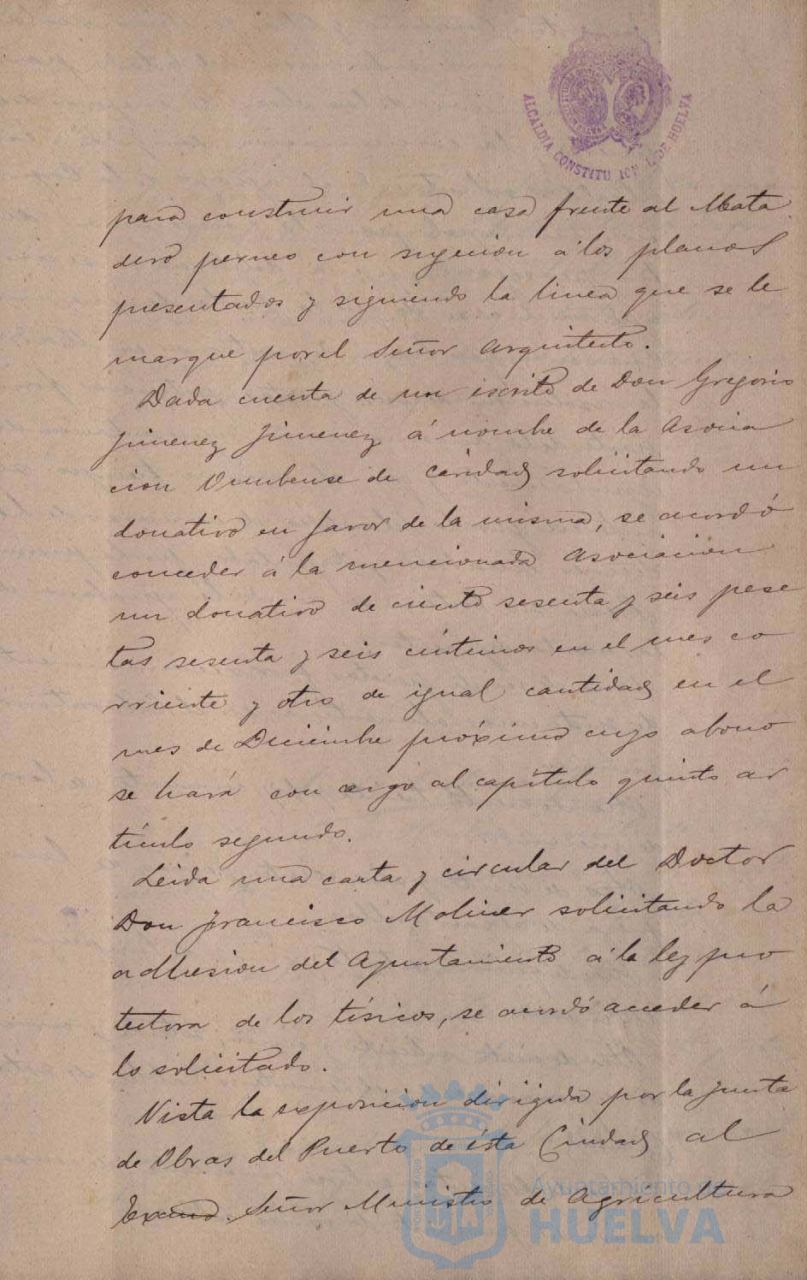 ALCALDIA CONSTITUCIONAL DE HUELVA
para construir una casa frente al Mata
dero perneo con sugecion á los planos
presentados y siguiendo la linea que se le
marque por el Señor Arquitecto.
Dada cuenta de un escrito de Don Gregorio
Jimenez Jimenez á nombre de la Asocia
cion Onubense de Caridad solicitando un
donativo en favor de la misma, se acordó
conceder á la mencionada Asociacion
un donativo de ciento sesenta y seis pese
tas sesenta y seis céntimos en el mes co
rriente y otro de igual cantidad en el
mes de Diciembre próximo cuyo abono
se hará con cargo al capítulo quinto ar
tículo segundo.
Leida una carta y circular del Doctor
Don Francisco Moliner solicitando la
adhesion del Ayuntamiento á la ley pro
tectora de los tísicos, se acordó acceder á
lo solicitado.
Vista la exposicion dirigida por la Junta
de Obras del Puerto de ésta Ciudad al
Excmo. Señor Ministro de Agricultura
Ayuntamiento de
HUELVA